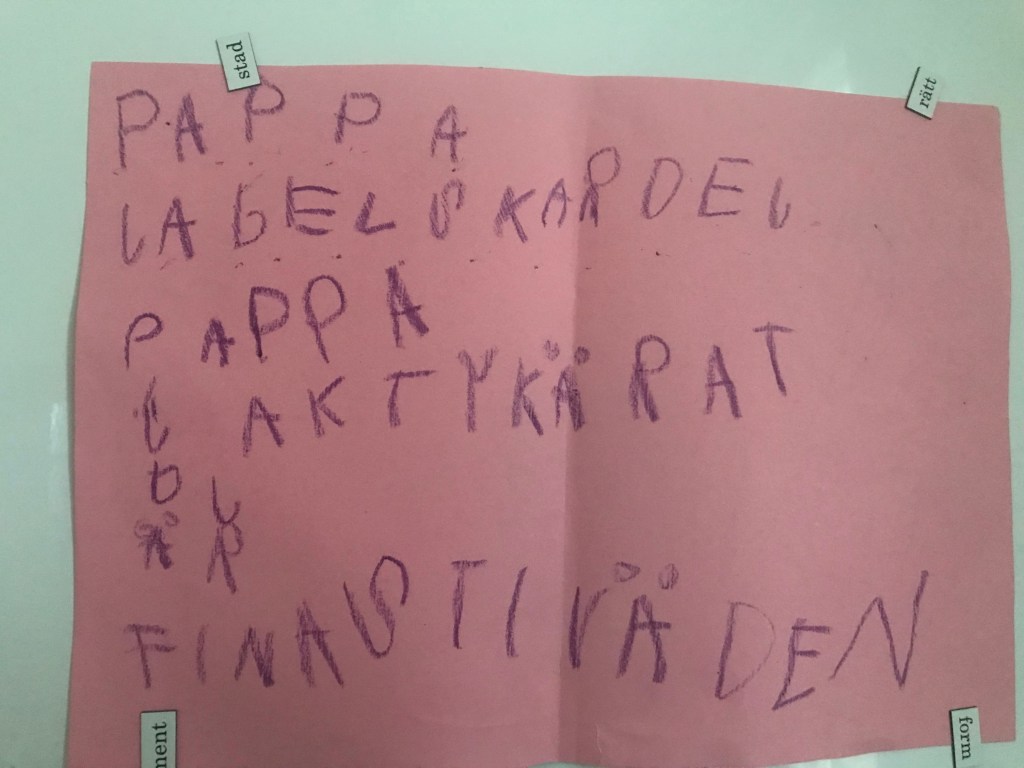 stad
rätt
PAPPA
JAG ELSKAR DEJ
PAPPA
JAKTYKÄRAT
DU
ÄR
FINAST I VÄDEN
ment
form